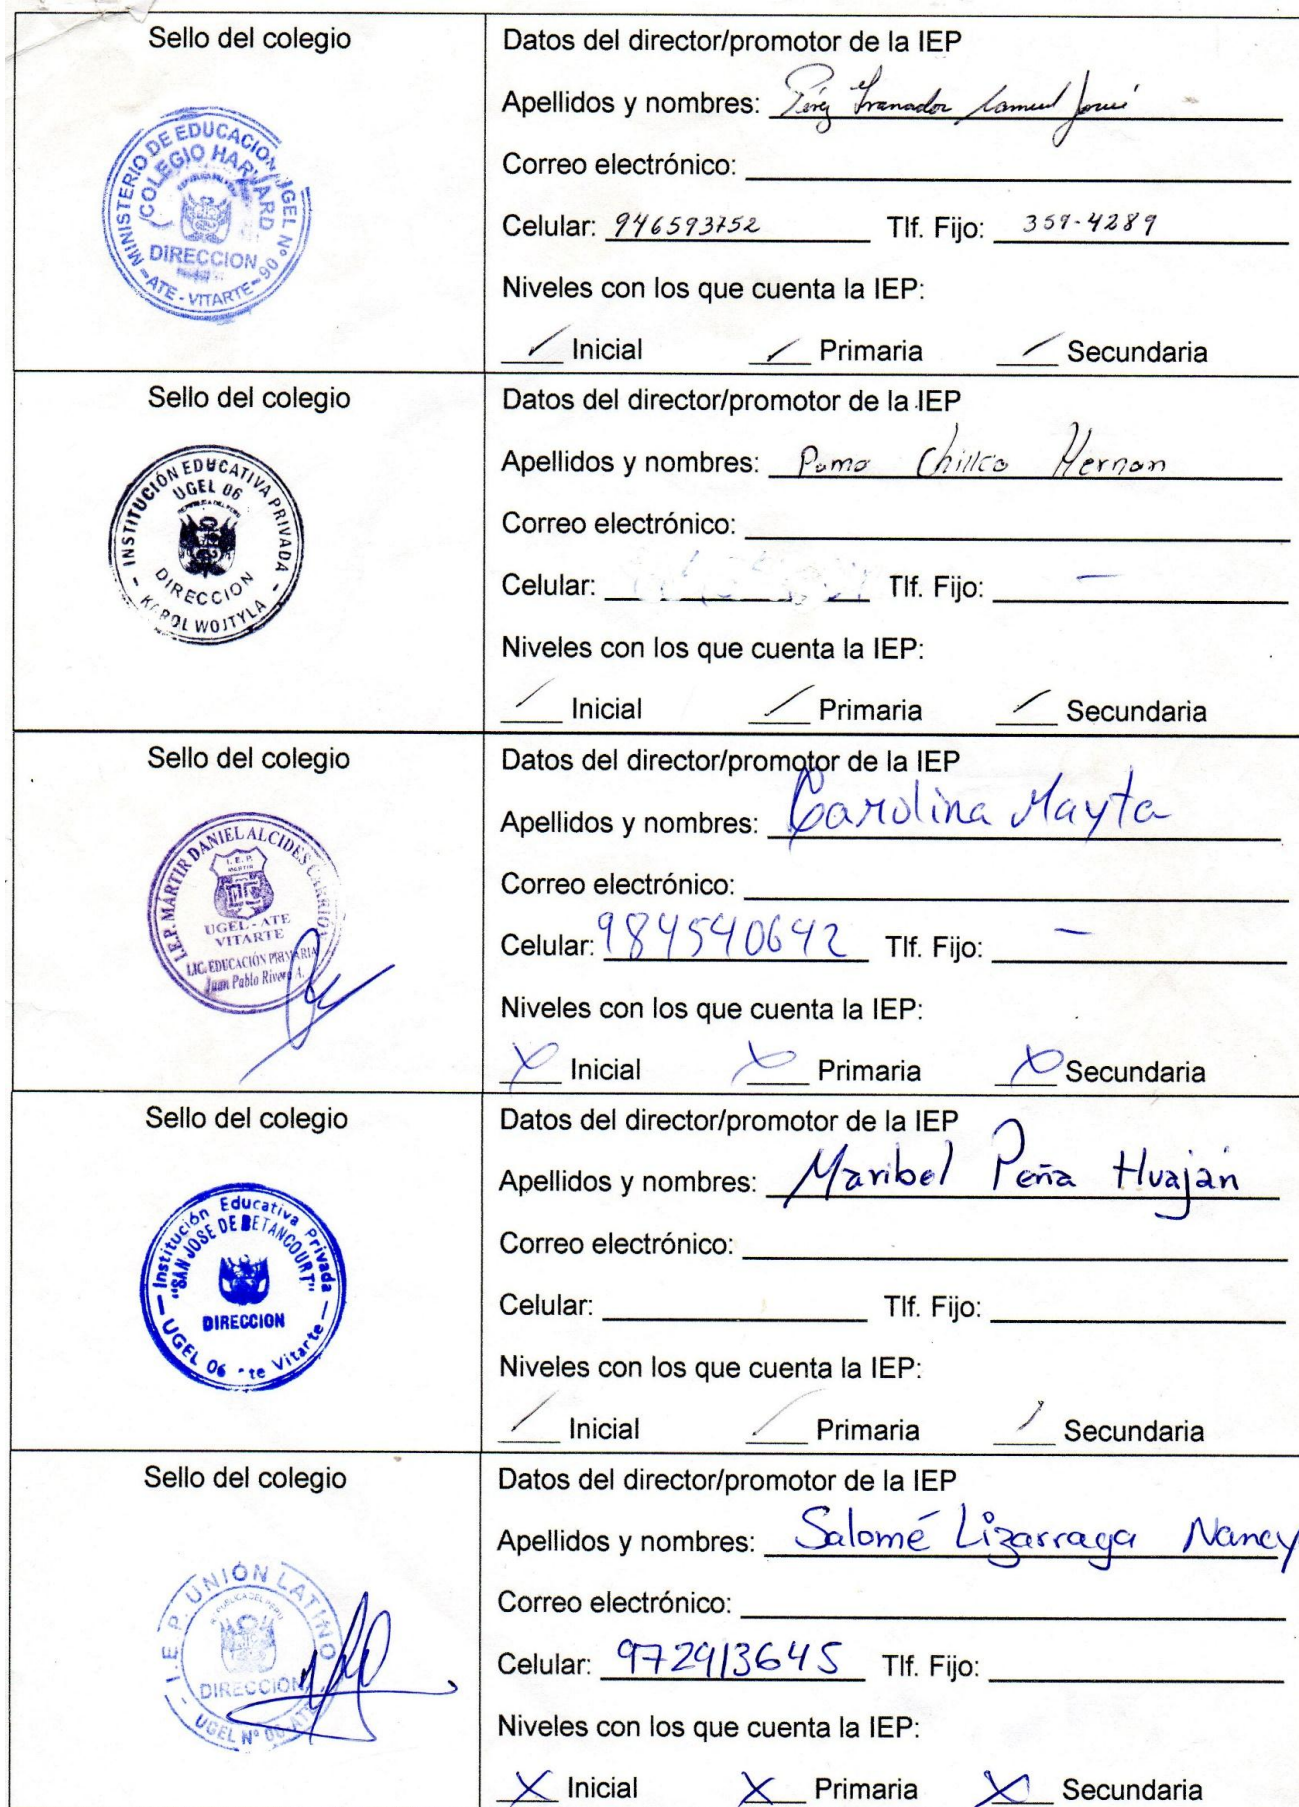 Sello del colegio
MINISTERIO DE EDUCACION UGEL Nº
COLEGIO HARVARD
DIRECCION
ATE - VITARTE
Datos del director/promotor de la IEP
Apellidos y nombres: Pérez Granador Samuel Josué
Correo electrónico:
Celular: 946593752 Tlf. Fijo: 359-4289
Niveles con los que cuenta la IEP:
Inicial Primaria Secundaria
Sello del colegio
INSTITUCIÓN EDUCATIVA PRIVADA
UGEL 06
REPUBLICA DEL PERU
DIRECCION
KAROL WOJTYLA
Datos del director/promotor de la IEP
Apellidos y nombres: Poma Chillca Hernan
Correo electrónico:
Celular: Tlf. Fijo: –
Niveles con los que cuenta la IEP:
Inicial Primaria Secundaria
Sello del colegio
I.E.P. MÁRTIR DANIEL ALCIDES CARRIÓN
I.E.P.
MARTIR
UGEL - ATE
VITARTE
LIC. EDUCACIÓN PRIMARIA
Juan Pablo Rivera A.
Datos del director/promotor de la IEP
Apellidos y nombres: Carolina Mayta
Correo electrónico:
Celular: 984540642 Tlf. Fijo: –
Niveles con los que cuenta la IEP:
X Inicial X Primaria X Secundaria
Sello del colegio
Institución Educativa Privada
"SAN JOSE DE BETANCOURT"
DIRECCION
UGEL 06 te Vitarte
Datos del director/promotor de la IEP
Apellidos y nombres: Maribel Peña Huaján
Correo electrónico:
Celular: Tlf. Fijo:
Niveles con los que cuenta la IEP:
Inicial Primaria Secundaria
Sello del colegio
I.E.P. UNIÓN LATINO
DIRECCION
UGEL Nº 06-ATE
Datos del director/promotor de la IEP
Apellidos y nombres: Salomé Lizarraga Nancy
Correo electrónico:
Celular: 972913645 Tlf. Fijo:
Niveles con los que cuenta la IEP:
X Inicial X Primaria X Secundaria